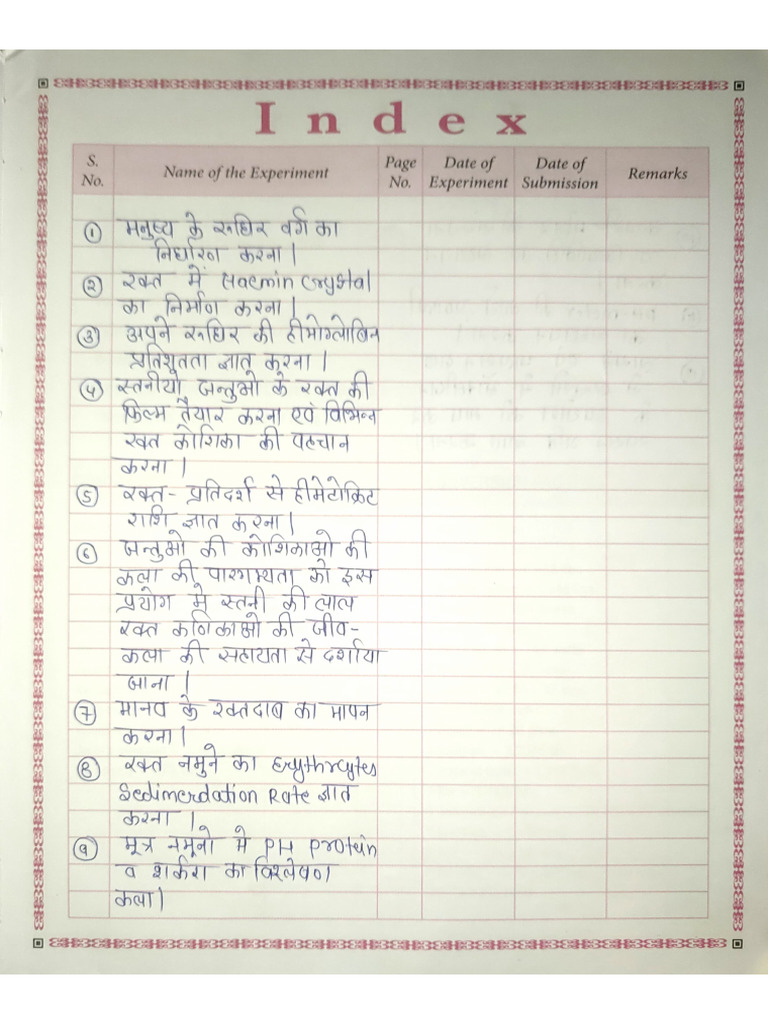 Index
S. No.
Name of the Experiment
Page No.
Date of Experiment
Date of Submission
Remarks
① मनुष्य के रुधिर वर्ग का
निर्धारण करना।
② रक्त में Haemin Crystal
का निर्माण करना।
③ अपने रुधिर की हीमोग्लोबिन
प्रतिशतता ज्ञात करना।
④ स्तनीयो जन्तुओ के रक्त की
फिल्म तैयार करना एवं विभिन्न
रक्त कोशिका की पहचान
करना।
⑤ रक्त- प्रतिदर्श से हीमेटोक्रिट
राशि ज्ञात करना।
⑥ जन्तुओ की कोशिकाओ की
कला की पारगम्यता को इस
प्रयोग मे स्तनी की लाल
रक्त कणिकाओ की जीव-
कला की सहायता से दर्शाया
जाना।
⑦ मानव के रक्तदाब का मापन
करना।
⑧ रक्त नमुने का Erythrcytes
Sedimerdation Rate ज्ञात
करना।
⑨ मूत्र नमूनो मे PH Protein
व शर्करा का विश्लेषण
कला।